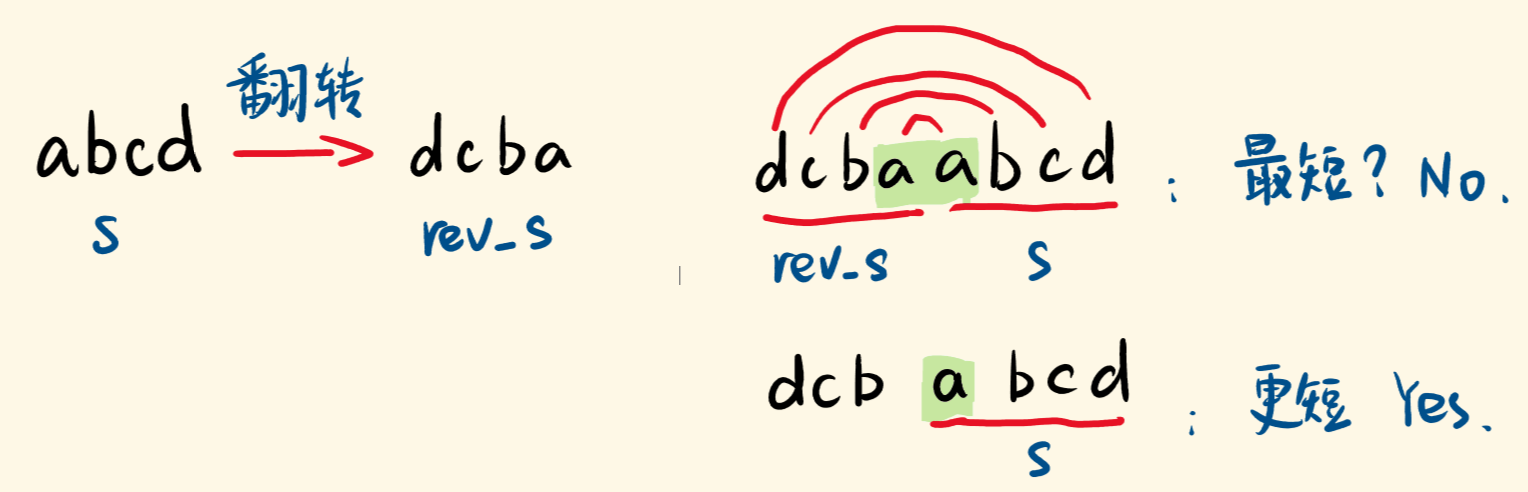 翻转
abcd → dcba
s rev_s
dcbaabcd ; 最短? No.
rev_s s
dcb a bcd ; 更短 Yes.
s